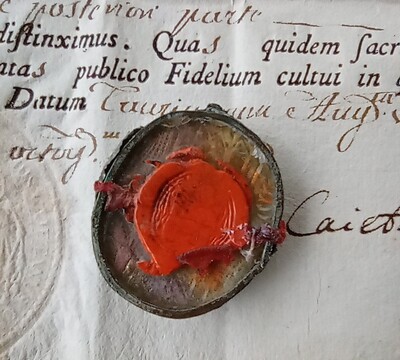 posteriori parte
diſtinximus. Quas quidem ſacr
atas publico Fidelium cultui in
Datum Taurini
Caiet